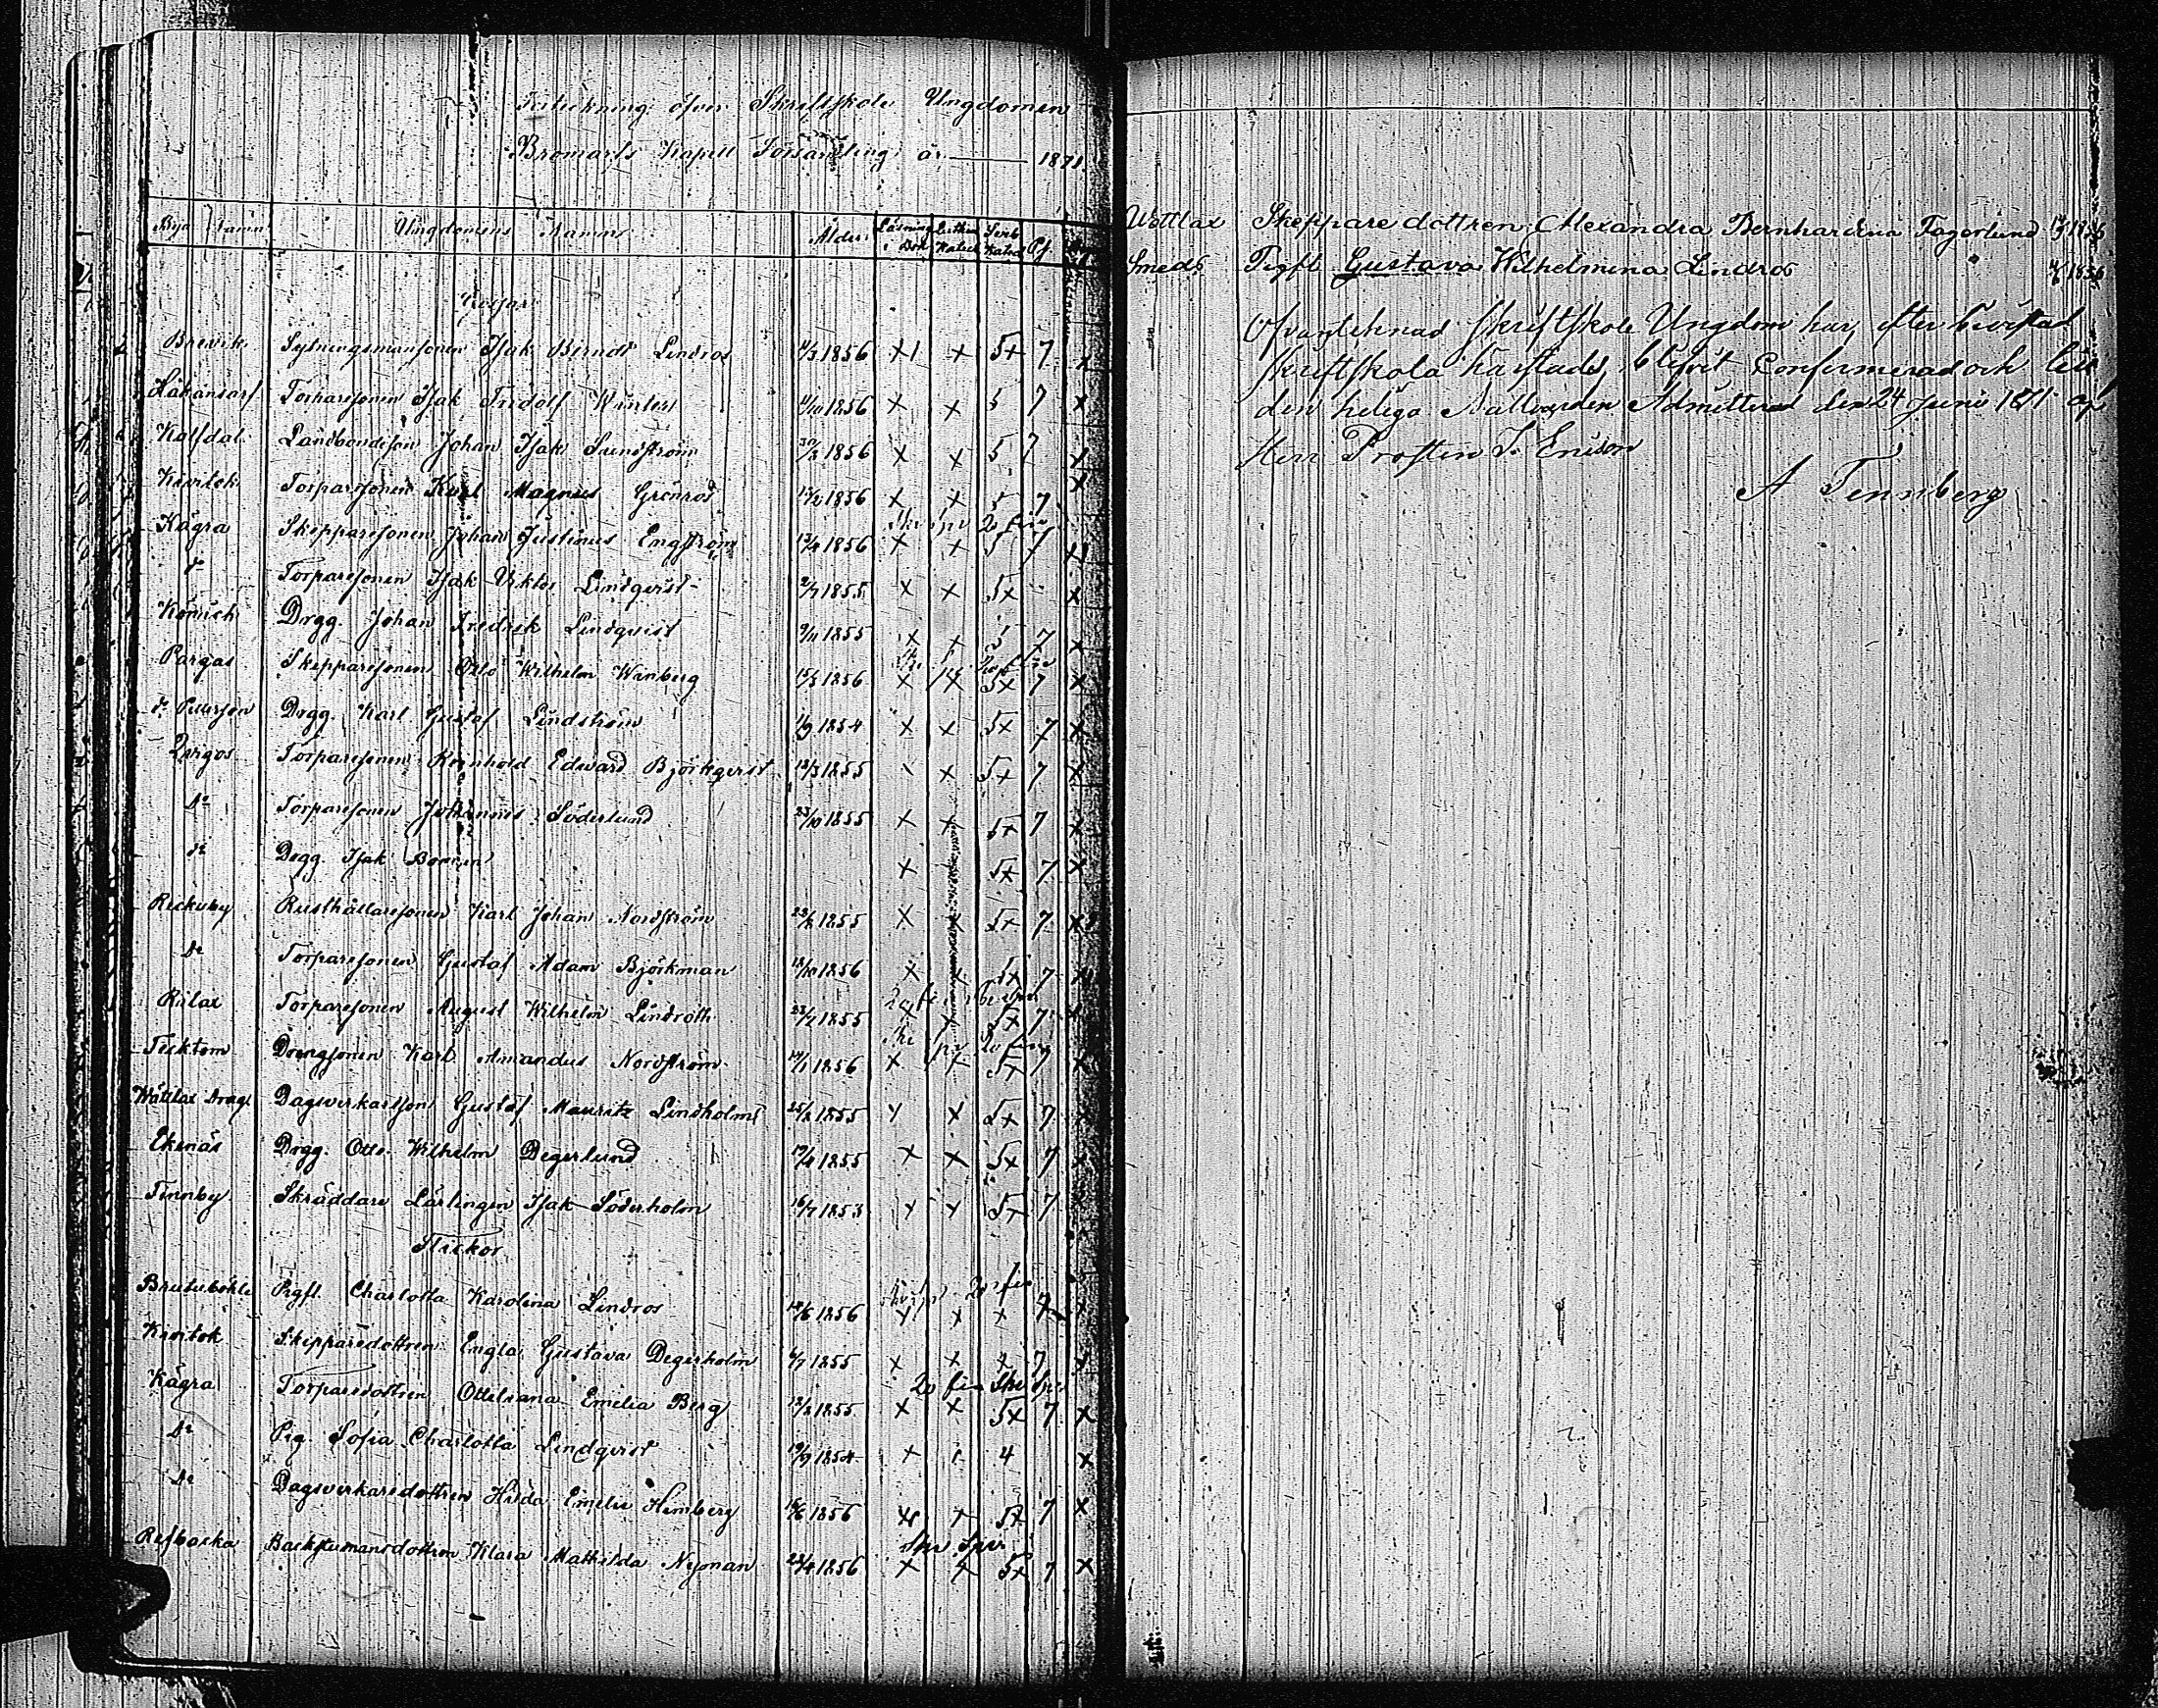 Förteckning öfver Skriftskole Ungdomen
Bromarfs Kapell Församling år 1871.
Byn Namn Ungdomens Namn Ålder Läsning i Bok Luthers Kateck Sveb Kateck Pf
Gossar
Brevik Sytningsmansonen Isak Berndt Lindros 1856 X X 5x 7 x
Håkansarf Torparesonen Isak Fridolf Winter 11/10 1856 X X 5 7 x
Kalfdal Landbondeson Johan Isak Sundström 30/3 1856 X X 5 7 x
Kivitok Torparesonen Karl Magnus Grönros 1856 X X 5 7 x
Skr spr 20 fin
Kågra Skepparesonen Johan Justinus Engström 13/4 1856 X X 5 7 x
do Torparesonen Isak Viktor Lindqvist 2/7 1855 x x 5x x
Drgg. Johan Fredrik Lindqvist 9/11 1855 x x 5 7 x
Pargas Skepparesonen Otto Wilhelm Winberg 15/5 1856 x x 5x 7 x
Drgg. Karl Gustaf Lindström 1/9 1854 x x 5x 7 x
Torparesonen Reinhold Edward Björkqvist 12/3 1855 x x 5x 7 x
do Torparesonen Johannes Söderlund 23/10 1855 x x 5x 7 x
do Drgg. Isak x x 5x 7 x
Rickuby Rusthållaresonen Karl Johan Nordström 1855 X x 5x 7 x
do Torparesonen Gustaf Adam Björkman 13/10 1856 x x 5x 7 x
Rilax Torparesonen August Wilhelm Lindroth 23/2 1855 x x 5x 7 x
Skr spr 20 fin
Tecktom Drengsonen Karl Amandus Nordström 1856 x x 5x 7 x
Wättlax Dagsverkareson Gustaf Mauritz Lindholm 25/2 1855 x x 5x 7 x
Ekenäs Drgg. Otto Wilhelm Degerlund 1855 x x 5x 7 x
Tennby Skräddare Lärlingen Isak Söderholm 16/7 1853 x x 5x 7 x
Flickor
Skr spr 20 fin
Brutubohle Pigfl. Charlotta Karolina Lindros 1856 x x x 7 x
Kivitok Skepparedottren Engla Gustava Degerholm 6/7 1855 x x x 7 x
20 fin Skr Spr
Kågra Torparedottren Otteliana Emelia Berg 1855 x x 5x 7 x
do Pig. Sofia Charlotta Lindqvist 19/9 1854 x x 4 x
do Dagsverkaredottren Hilda Emelie Himberg 15/6 1856 x x 5x 7 x
Skr Spr
Refbacka Backstumansdottren Klara Mathilda Nyman 1856 x x 5x 7 x
Wättlax Skeppare dottren Alexandra Bernhardina Fagerlund 1856
Smeds Pigfl Gustava Wilhelmina Lindros 1856
Ofvantecknad Skriftskole Ungdom har, efter bevistad
skriftskola härstädes, blifvit Confirmerad och till
den heliga Nattvarden Admitterad den 24 Juni 1871 af
Herr Prosten
A Tennberg